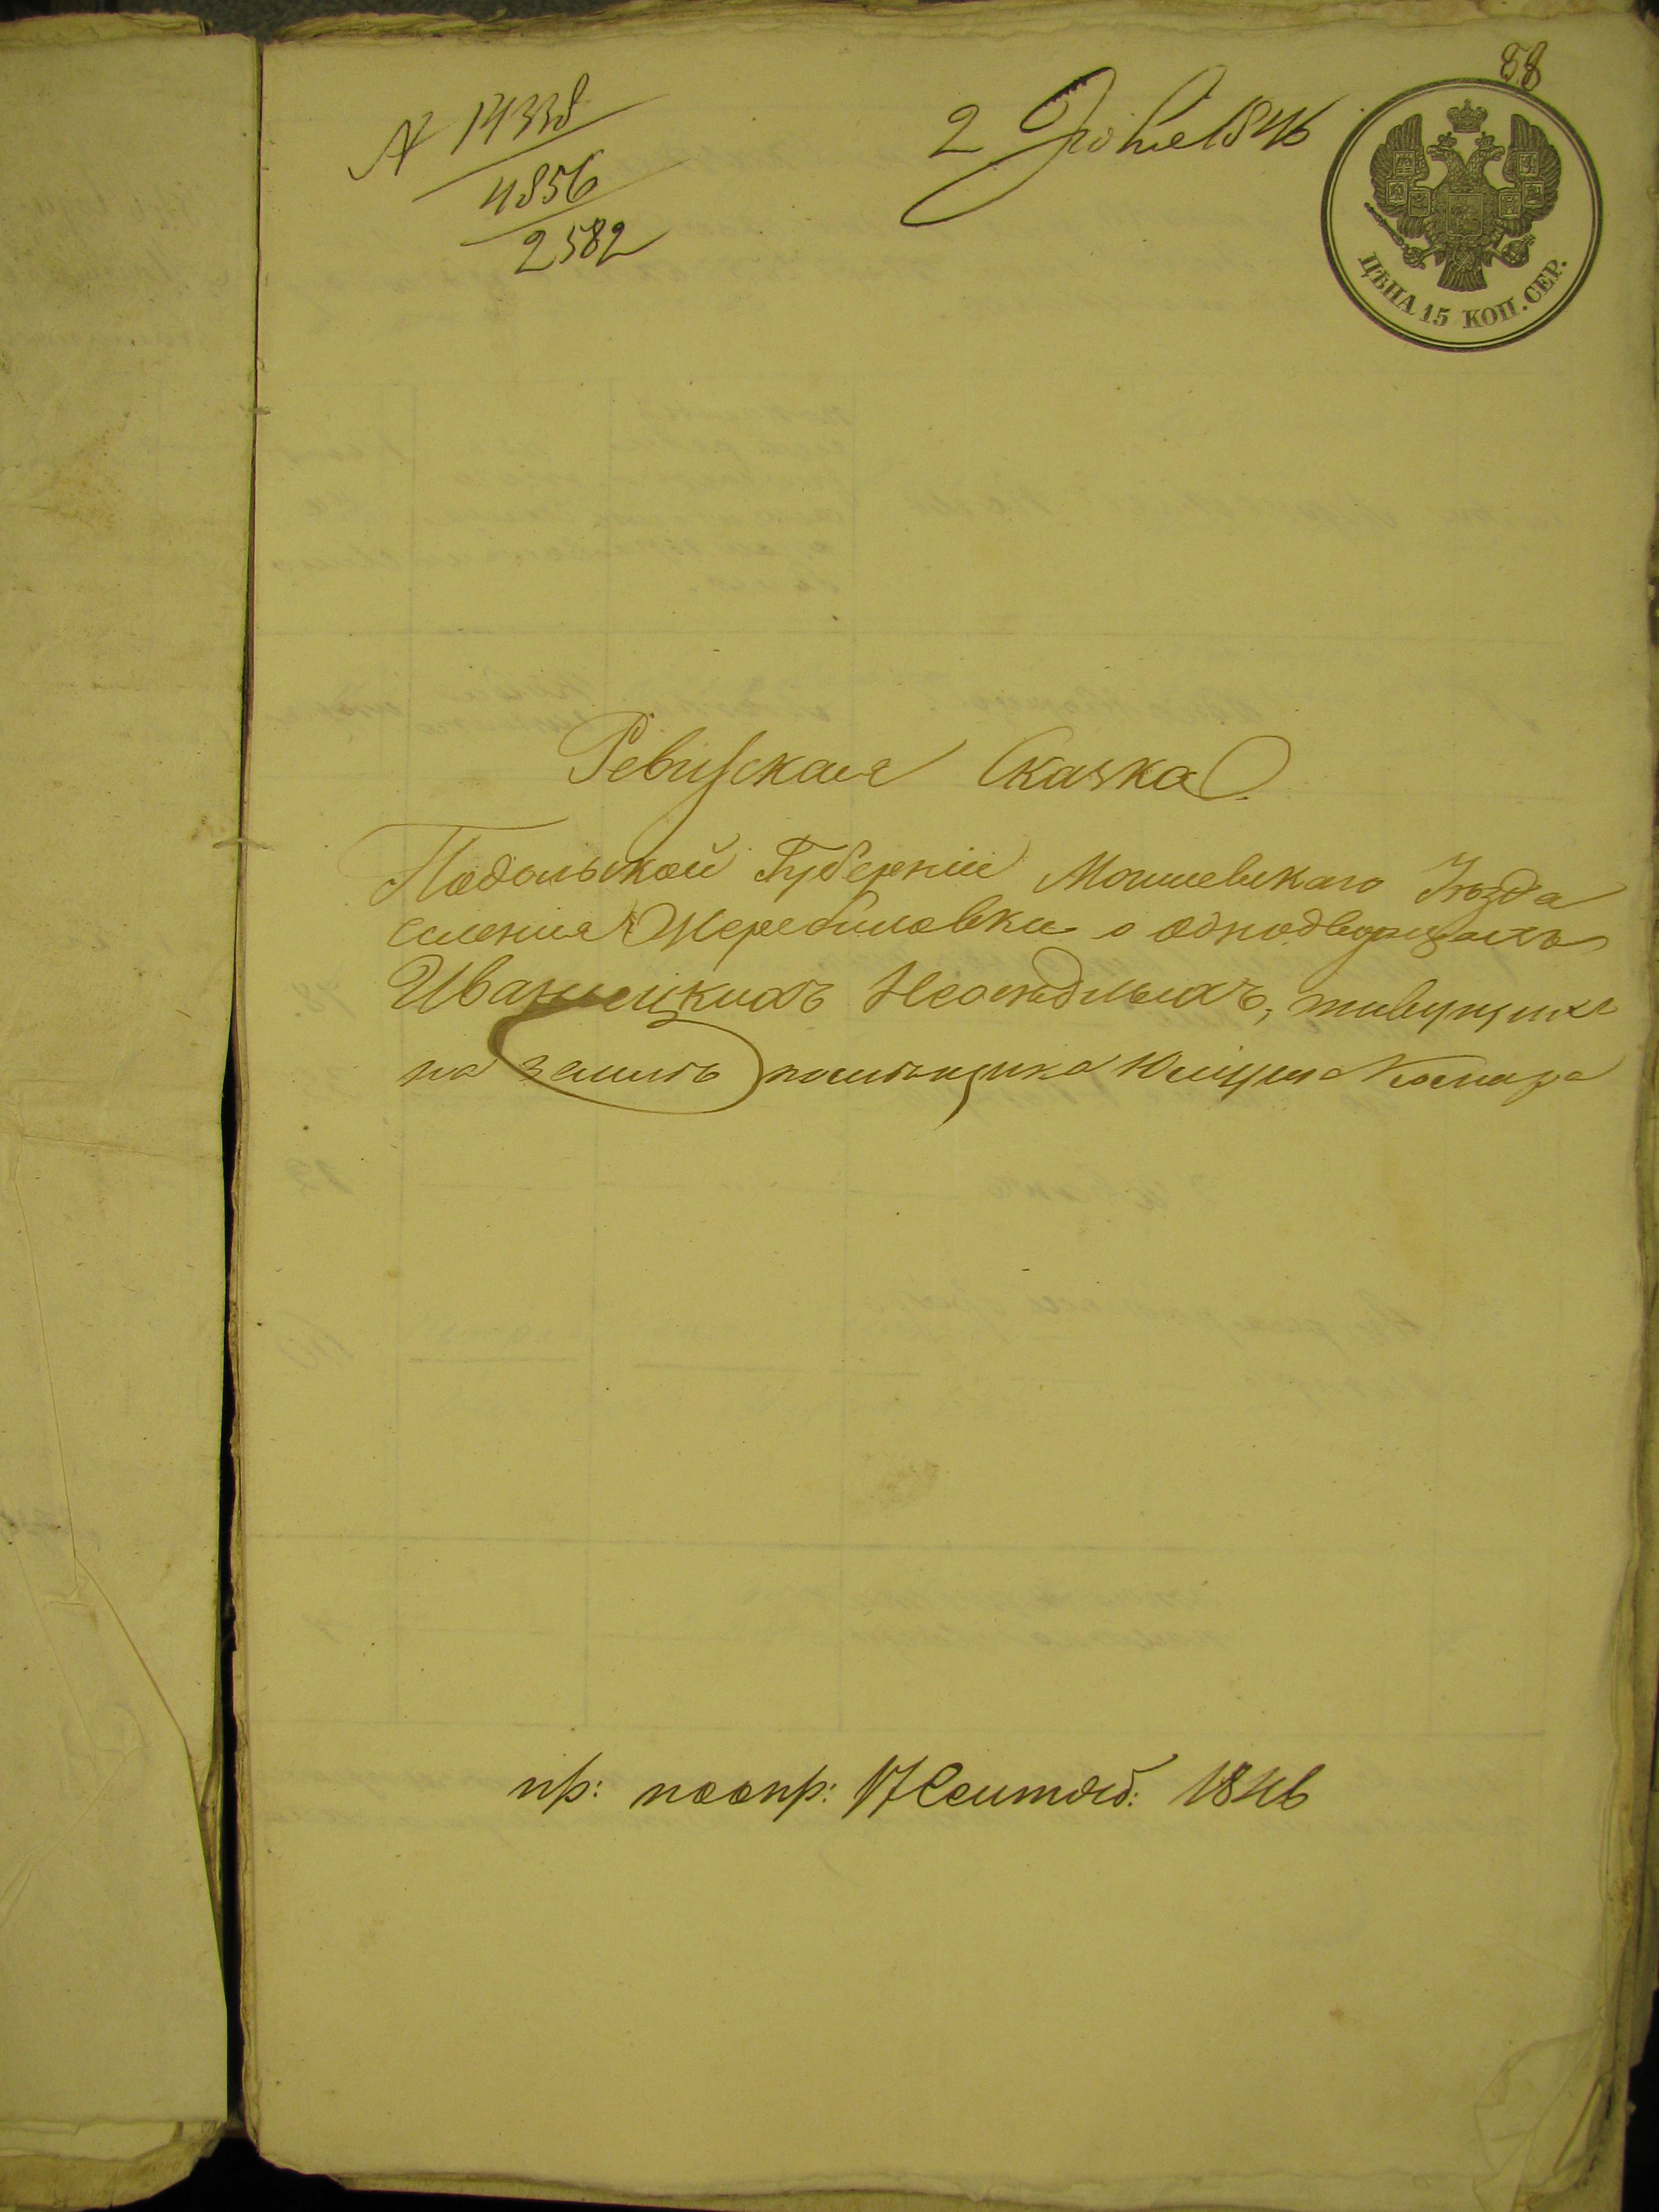 58
№ 14338
4856
2582
2 Июня 1846
ЦѢНА 15 КОП. СЕР.
Ревизская Сказка
Подольской Губерніи Могилевскаго Уѣзда
селенія Жеребиловки о однодворцахъ
Иванецкихъ Неосѣдлыхъ, живущихъ
на землѣ помѣщика Комара
пр: 17 Сентяб: 1846